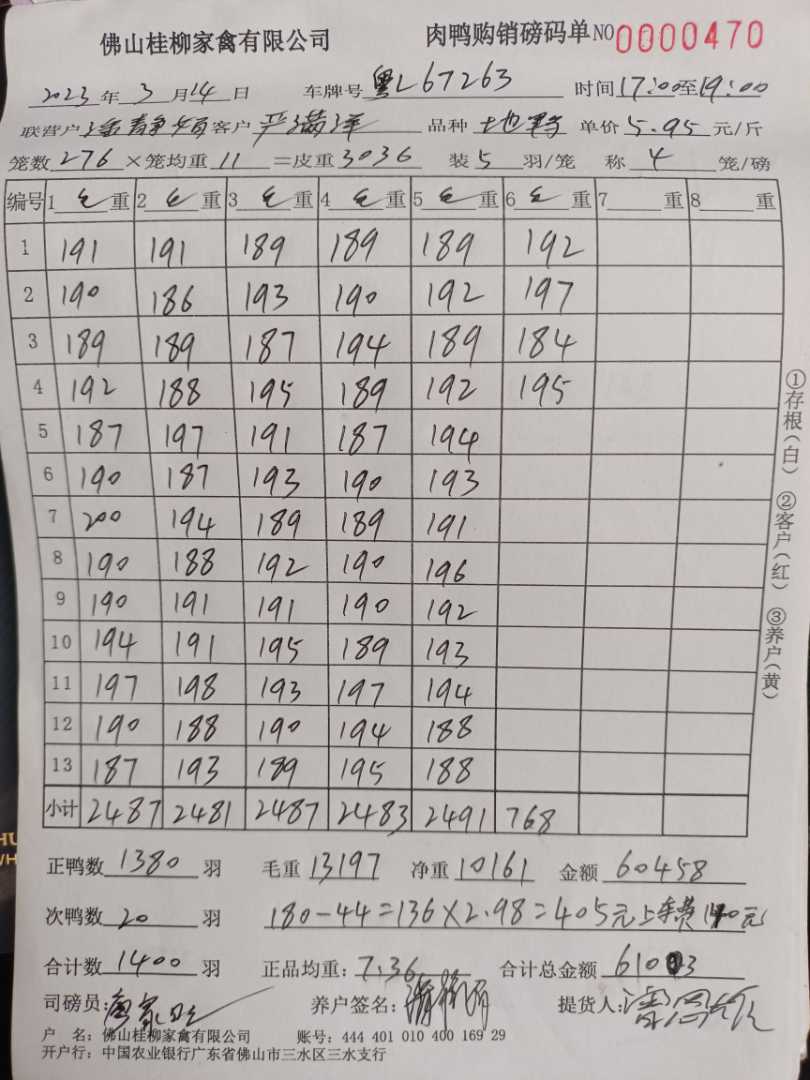 佛山桂柳家禽有限公司 肉鸭购销磅码单 NO 0000470
2023年3月14日 车牌号 粤L67263 时间17:00至19:00
联营户 客户 严满洋 品种 土也鸭 单价5.95元/斤
笼数276×笼均重11=皮重3036 装5羽/笼 称4笼/磅
编号 1 毛 重 2 毛 重 3 毛 重 4 毛 重 5 毛 重 6 毛 重 7 重 8 重
1 191 191 189 189 189 192
2 190 186 193 190 192 197
3 189 189 187 194 189 184
4 192 188 195 189 192 195
5 187 197 191 187 194
6 190 187 193 190 193
7 200 194 189 189 191
8 190 188 192 190 196
9 190 191 191 190 192
10 194 191 195 189 193
11 197 198 193 197 194
12 190 188 190 194 188
13 187 193 189 195 188
小计 2487 2481 2487 2483 2491 768
正鸭数1380羽 毛重13197 净重10161 金额60458
次鸭数20羽 180-44=136×2.98=405元上车费140元
合计数1400羽 正品均重:7.36 合计总金额61003
司磅员: 养户签名: 提货人:
户 名:佛山桂柳家禽有限公司 账号:444 401 010 400 169 29
开户行:中国农业银行广东省佛山市三水区三水支行
①存根(白) ②客户(红) ③养户(黄)